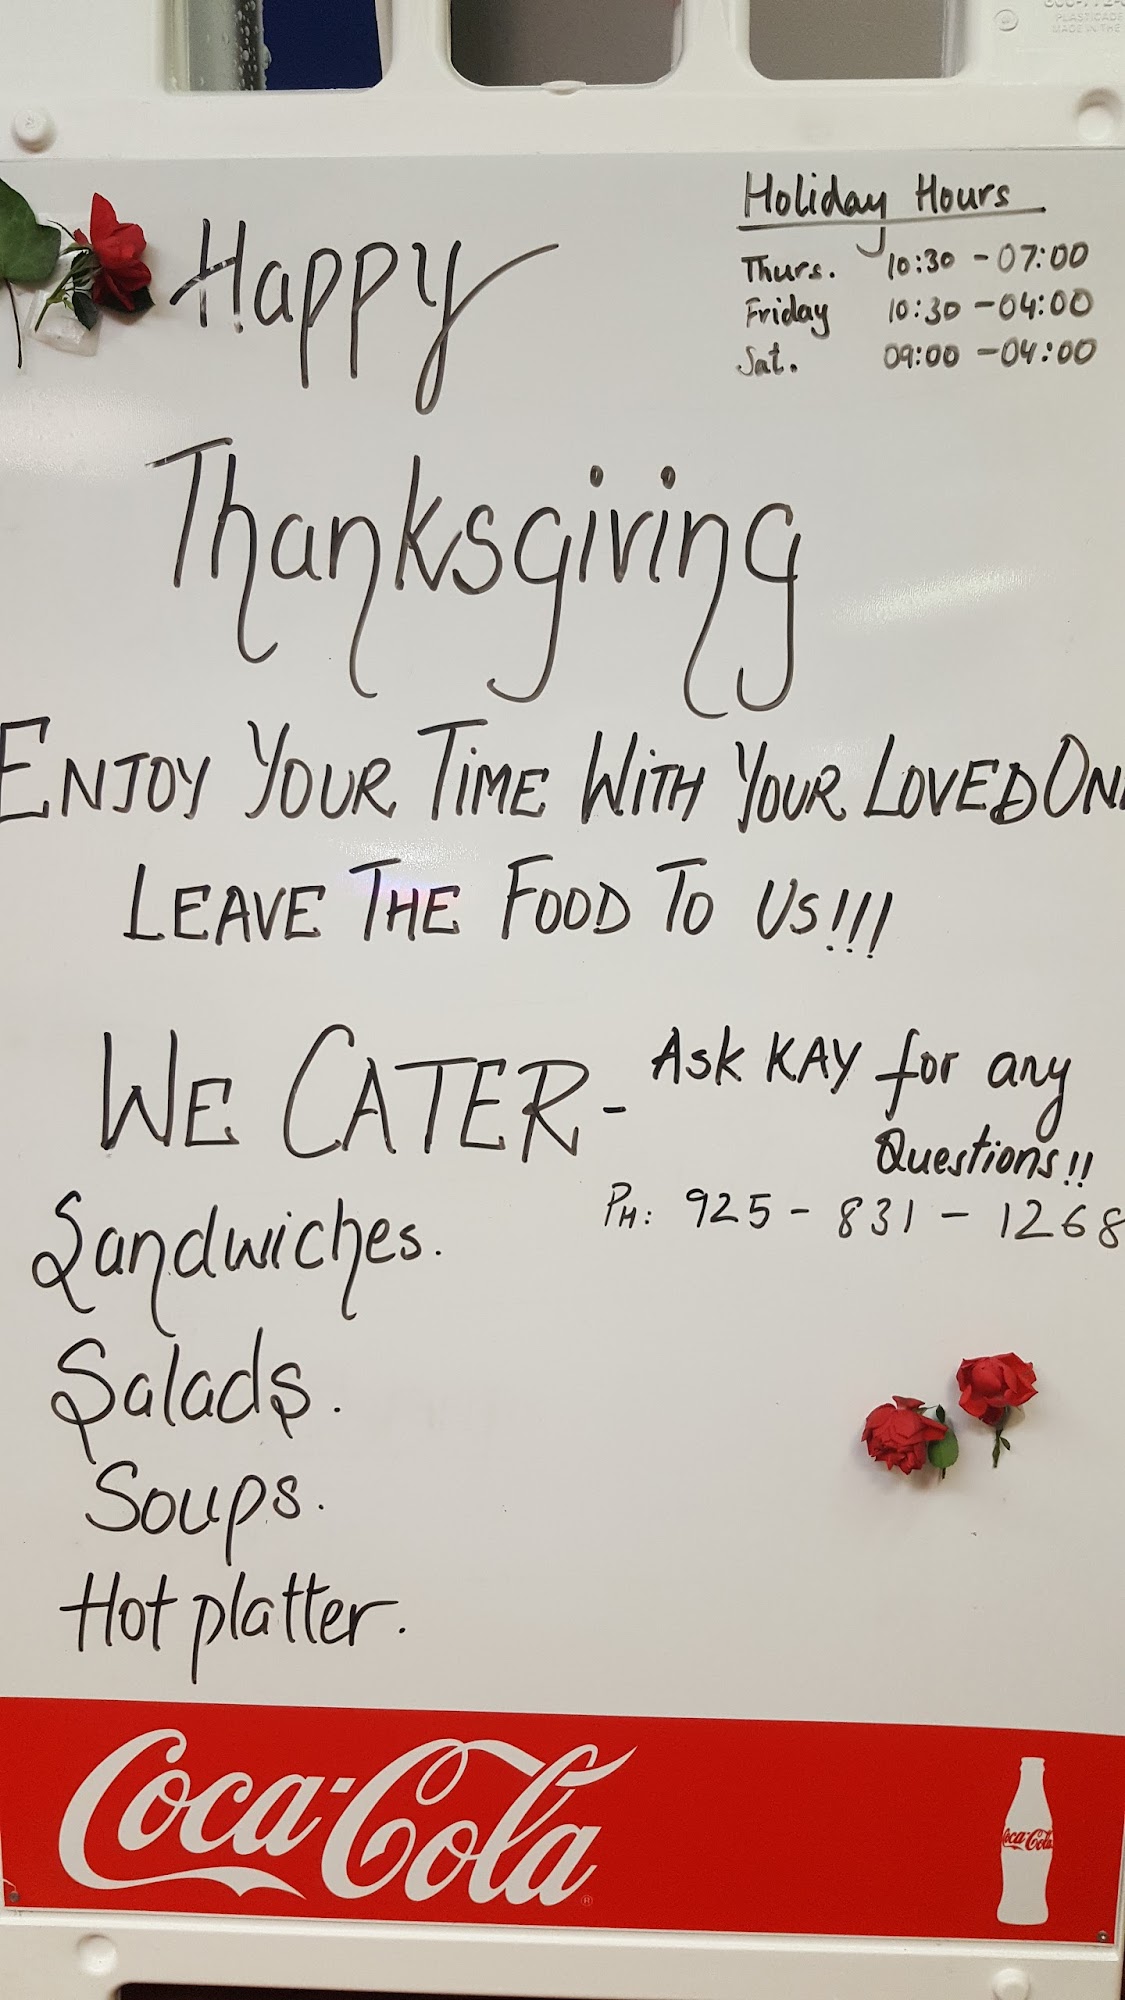 Happy
Thanksgiving
Holiday Hours
Thurs. 10:30 - 07:00
Friday 10:30 - 04:00
Sat. 09:00 - 04:00
ENJOY YOUR TIME WITH YOUR LOVED ON
LEAVE THE FOOD TO US!!!
WE CATER - Ask KAY for any
Questions!!
PH: 925 - 831 - 1268
Sandwiches.
Salads.
Soups.
Hot platter.
Coca-Cola
Coca-Cola